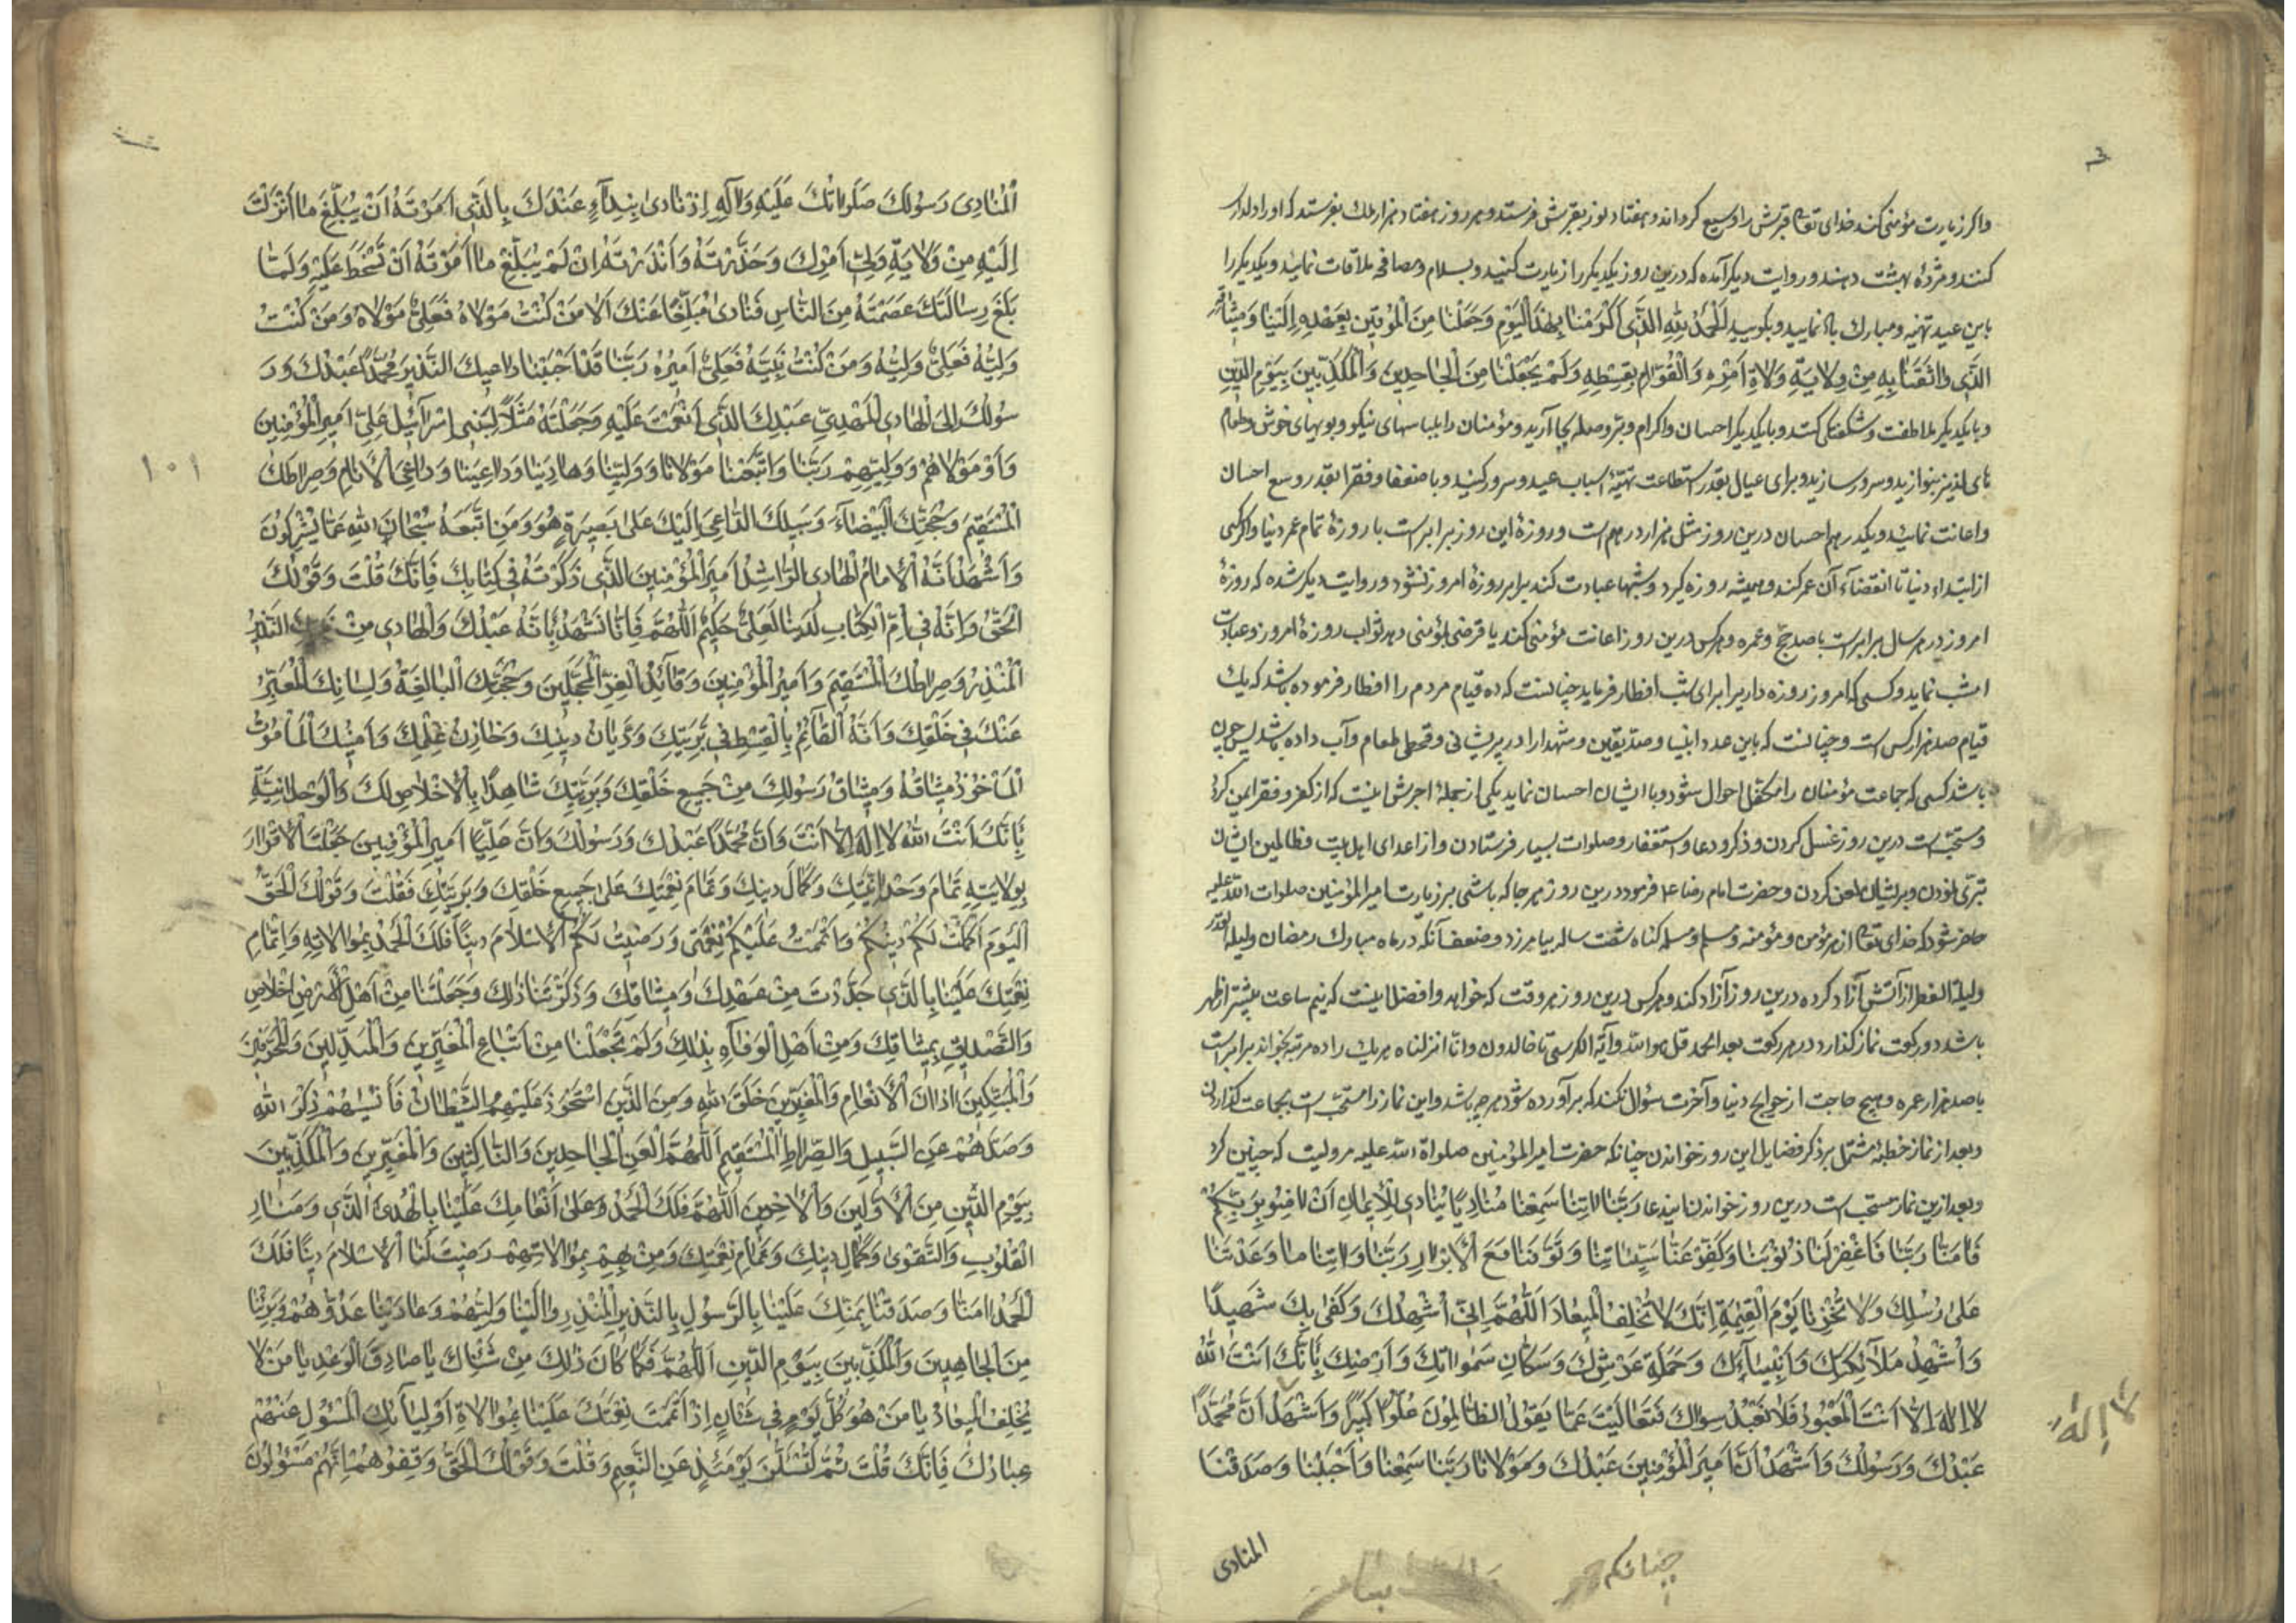 واکر زیارت مؤمنی کند خدای تعالی قبرش را وسیع کرداند و هفتاد نور بقبرش فرستد و هر روز هفتاد هزار ملك بفرستد که اورا
کنند و مژدهٔ بهشت دهند و در روایت دیکر آمده که درین روز یکدیکر را زیارت کنید و بسلام و مصافحه ملاقات نمایند و یکدیکر را
باین عید تهنیه و مبارك باد نمایید و بکویید اَلْحَمْدُ لِلّٰهِ الَّذِی اَکْرَمَنَا بِهٰذَا الْیَوْمِ وَجَعَلَنَا مِنَ الْمُوْقِنِینَ بِعَهْدِهِ اِلَیْنَا وَمِیثَاقِهِ
الَّذِی وَاثَقَنَا بِهِ مِنْ وِلَایَةِ وُلَاةِ اَمْرِهِ وَالْقُوَّامِ بِقِسْطِهِ وَلَمْ یَجْعَلْنَا مِنَ الْجَاحِدِینَ وَالْمُکَذِّبِینَ بِیَوْمِ الدِّینِ
و با یکدیکر ملاطفت و شکفتکی کنند و با یکدیکر احسان و اکرام و بر و صله بجا آرید و مؤمنان را بلباسهای نیکو و بویهای خوش و طعام
های لذیذ بنوازید و سرور سازید و برای عیال بقدر استطاعت تهیّهٔ اسباب عید و سرور کنید و با ضعفا و فقرا بقدر وسع احسان
و اعانت نمایند و یکدرهم احسان درین روز مثل هزار درهم است و روزهٔ این روز برابر است با روزهٔ تمام عمر دنیا و اکر کسی
از ابتداء دنیا تا انقضاء آن عمر کند و همیشه روزه کیرد و شبها عبادت کند برابر روزهٔ امروز نشود و در روایت دیکر شده که روزهٔ
امروز در هر سال برابر است با صد حج و عمره و هرکس درین روز اعانت مؤمنی کند یا قرضی بمؤمنی دهد ثواب روزهٔ امروز و عبادت
امشب نماید و کسی که امروز روزه داریرا برای شب افطار فرماید چنانست که ده قیام مردم را افطار فرموده باشد که یك
قیام صد هزار کس است و چنانست که باین عدد انبیا و صدیقین و شهدا را در پریشانی و قحطی طعام و آب داده باشد پس چون
باشد کسی که جماعت مؤمنان را متکفل احوال شود و با ایشان احسان نماید یکی از جملهٔ اجرش اینست که از کفر و فقر ایمن کردد
و مستحبّ است درین روز غسل کردن و ذکر و دعا و استغفار و صلوات بسیار فرستادن و از اعدای اهل بیت و ظالمین ایشان
تبرّی نمودن و بر ایشان لعن کردن و حضرت امام رضا ع فرمود درین روز هر جا که باشی بر زیارت امیر المؤمنین صلوات الله علیه
حاضر شو که خدای تعالی از هر مؤمن و مؤمنه و مسلم و مسلمه کناه شصت ساله بیامرزد و ضعف آنکه در ماه مبارك رمضان و لیلة القدر
و لیلة الفطر از آتش آزاد کرده درین روز آزاد کند و هرکس درین روز هر وقت که خواهد و افضل اینست که نیم ساعت پیشتر از ظهر
باشد دو رکعت نماز کذارد در هر رکعت بعد الحمد قل هو الله و آیة الکرسی تا خالدون و انّا انزلناه هر یك را ده مرتبه بخواند برابر است
با صد هزار عمره و هیچ حاجت از حوایج دنیا و آخرت سؤال نکند که برآورده شود هر چه باشد و این نماز را مستحبّ است بجماعت کذاردن
و بعد از نماز خطبهٔ مشتمل بر ذکر فضایل این روز خواندن چنانکه حضرت امیر المؤمنین صلواة الله علیه مرویست که چنین کرد
و بعد ازین نماز مستحب است درین روز خواندن ایندعا رَبَّنَا اِنَّنَا سَمِعْنَا مُنَادِیًا یُنَادِی لِلْاِیمَانِ اَنْ اٰمِنُوا بِرَبِّکُمْ
فَاٰمَنَّا رَبَّنَا فَاغْفِرْ لَنَا ذُنُوبَنَا وَکَفِّرْ عَنَّا سَیِّئَاتِنَا وَتَوَفَّنَا مَعَ الْاَبْرَارِ رَبَّنَا وَاٰتِنَا مَا وَعَدْتَنَا
عَلٰی رُسُلِكَ وَلَا تُخْزِنَا یَوْمَ الْقِیٰمَةِ اِنَّكَ لَا تُخْلِفُ الْمِیعَادَ اَللّٰهُمَّ اِنِّی اُشْهِدُكَ وَکَفٰی بِكَ شَهِیدًا
وَاُشْهِدُ مَلَآئِکَتَكَ وَاَنْبِیَآءَكَ وَحَمَلَةَ عَرْشِكَ وَسُکَّانَ سَمٰوَاتِكَ وَاَرْضِكَ بِاَنَّكَ اَنْتَ اللهُ
لَا اِلٰهَ اِلَّا اَنْتَ الْمَعْبُودُ فَلَا نَعْبُدُ سِوَاكَ فَتَعَالَیْتَ عَمَّا یَقُولُ الظَّالِمُونَ عُلُوًّا کَبِیرًا وَاَشْهَدُ اَنَّ مُحَمَّدًا
عَبْدُكَ وَرَسُولُكَ وَاَشْهَدُ اَنَّ اَمِیرَ الْمُؤْمِنِینَ عَبْدُكَ وَمَوْلَانَا رَبَّنَا سَمِعْنَا وَاَجَبْنَا وَصَدَّقْنَا
المنادی
چنانکه
لا إله
الْمُنَادِیَ رَسُولَكَ صَلَوَاتُكَ عَلَیْهِ وَاٰلِهِ اِذْ نَادٰی بِنِدَآءٍ عَنْكَ بِالَّذِی اَمَرْتَهُ اَنْ یُبَلِّغَ مَا اَنْزَلْتَ
اِلَیْهِ مِنْ وَلَایَةِ وَلِیِّ اَمْرِكَ وَحَذَّرْتَهُ وَاَنْذَرْتَهُ اِنْ لَمْ یُبَلِّغْ مَا اَمَرْتَهُ اَنْ تَسْخَطَ عَلَیْهِ وَلَمَّا
بَلَّغَ رِسَالَتَكَ عَصَمْتَهُ مِنَ النَّاسِ فَنَادٰی مُبَلِّغًا عَنْكَ اَلَا مَنْ کُنْتُ مَوْلَاهُ فَعَلِیٌّ مَوْلَاهُ وَمَنْ کُنْتُ
وَلِیُّهُ فَعَلِیٌّ وَلِیُّهُ وَمَنْ کُنْتُ نَبِیَّهُ فَعَلِیٌّ اَمِیرُهُ رَبَّنَا قَدْ اَجَبْنَا دَاعِیَكَ النَّذِیرَ مُحَمَّدًا عَبْدَكَ وَرَ
سُولَكَ اِلَی الْهَادِی الْمَهْدِیِّ عَبْدِكَ الَّذِی اَنْعَمْتَ عَلَیْهِ وَجَعَلْتَهُ مَثَلًا لِبَنِی اِسْرَآئِیلَ عَلِیٍّ اَمِیرِ الْمُؤْمِنِینَ
وَمَوْلَاهُمْ وَوَلِیِّهِمْ رَبَّنَا وَاتَّبَعْنَا مَوْلَانَا وَوَلِیَّنَا وَهَادِیَنَا وَدَاعِیَنَا وَدَاعِیَ الْاَنَامِ وَصِرَاطَكَ
الْمُسْتَقِیمَ وَحُجَّتَكَ الْبَیْضَآءَ وَسَبِیلَكَ الدَّاعِیَ اِلَیْكَ عَلٰی بَصِیرَةٍ هُوَ وَمَنِ اتَّبَعَهُ سُبْحَانَ اللهِ عَمَّا یُشْرِکُونَ
وَاَشْهَدُ اَنَّهُ الْاِمَامُ الْهَادِی الرَّاشِدُ اَمِیرُ الْمُؤْمِنِینَ الَّذِی ذَکَرْتَهُ فِی کِتَابِكَ فَاِنَّكَ قُلْتَ وَقَوْلُكَ
الْحَقُّ وَاِنَّهُ فِی اُمِّ الْکِتَابِ لَدَیْنَا لَعَلِیٌّ حَکِیمٌ اَللّٰهُمَّ فَاِنَّا نَشْهَدُ بِاَنَّهُ عَبْدُكَ وَالْهَادِی مِنْ النَّذِیرُ
الْمُنْذِرُ وَصِرَاطُكَ الْمُسْتَقِیمُ وَاَمِیرُ الْمُؤْمِنِینَ وَقَآئِدُ الْغُرِّ الْمُحَجَّلِینَ وَحُجَّتُكَ الْبَالِغَةُ وَلِسَانُكَ الْمُعَبِّرُ
عَنْكَ فِی خَلْقِكَ وَاَنَّهُ الْقَآئِمُ بِالْقِسْطِ فِی بَرِیَّتِكَ وَدَیَّانُ دِینِكَ وَخَازِنُ عِلْمِكَ وَاَمِینُكَ الْمَأْمُونُ
الْمَأْخُوذُ مِیثَاقُهُ وَمِیثَاقُ رَسُولِكَ مِنْ جَمِیعِ خَلْقِكَ وَبَرِیَّتِكَ شَاهِدًا بِالْاِخْلَاصِ لَكَ وَالْوَحْدَانِیَّةِ
بِاَنَّكَ اَنْتَ اللهُ لَا اِلٰهَ اِلَّا اَنْتَ وَاَنَّ مُحَمَّدًا عَبْدُكَ وَرَسُولُكَ وَاَنَّ عَلِیًّا اَمِیرُ الْمُؤْمِنِینَ جَعَلْتَ الْاِقْرَارَ
بِوِلَایَتِهِ تَمَامَ وَحْدَانِیَّتِكَ وَکَمَالَ دِینِكَ وَتَمَامَ نِعْمَتِكَ عَلٰی جَمِیعِ خَلْقِكَ وَبَرِیَّتِكَ فَقُلْتَ وَقَوْلُكَ الْحَقُّ
اَلْیَوْمَ اَکْمَلْتُ لَکُمْ دِینَکُمْ وَاَتْمَمْتُ عَلَیْکُمْ نِعْمَتِی وَرَضِیتُ لَکُمُ الْاِسْلَامَ دِینًا فَلَكَ الْحَمْدُ بِمُوَالَاتِهِ وَاِتْمَامِ
نِعْمَتِكَ عَلَیْنَا بِالَّذِی جَدَّدْتَ مِنْ عَهْدِكَ وَمِیثَاقِكَ وَذَکَّرْتَنَا ذٰلِكَ وَجَعَلْتَنَا مِنْ اَهْلِ الْاِخْلَاصِ
وَالتَّصْدِیقِ بِمِیثَاقِكَ وَمِنْ اَهْلِ الْوَفَآءِ بِذٰلِكَ وَلَمْ تَجْعَلْنَا مِنْ اَتْبَاعِ الْمُغَیِّرِینَ وَالْمُبَدِّلِینَ وَالْمُحَرِّفِینَ
وَالْمُبَتِّکِینَ اٰذَانَ الْاَنْعَامِ وَالْمُغَیِّرِینَ خَلْقَ اللهِ وَمِنَ الَّذِینَ اسْتَحْوَذَ عَلَیْهِمُ الشَّیْطَانُ فَاَنْسٰیهُمْ ذِکْرَ اللهِ
وَصَدَّهُمْ عَنِ السَّبِیلِ وَالصِّرَاطِ الْمُسْتَقِیمِ اَللّٰهُمَّ الْعَنِ الْجَاحِدِینَ وَالنَّاکِثِینَ وَالْمُغَیِّرِینَ وَالْمُکَذِّبِینَ
بِیَوْمِ الدِّینِ مِنَ الْاَوَّلِینَ وَالْاٰخِرِینَ اَللّٰهُمَّ فَلَكَ الْحَمْدُ عَلٰی اِنْعَامِكَ عَلَیْنَا بِالْهُدَی الَّذِی وَمَنَارِ
الْقُلُوبِ وَالتَّقْوٰی وَکَمَالِ دِینِكَ وَتَمَامِ نِعْمَتِكَ وَمَنْ بِهِمْ بِمُوَالَاتِهِمْ رَضِیتَ لَنَا الْاِسْلَامَ دِینًا فَلَكَ
الْحَمْدُ اٰمَنَّا وَصَدَّقْنَا بِمَنِّكَ عَلَیْنَا بِالرَّسُولِ بِالنَّذِیرِ الْمُنْذِرِ وَالَیْنَا وَلِیَّهُمْ وَعَادَیْنَا عَدُوَّهُمْ وَبَرِئْنَا
مِنَ الْجَاحِدِینَ وَالْمُکَذِّبِینَ بِیَوْمِ الدِّینِ اَللّٰهُمَّ فَکَمَا کَانَ ذٰلِكَ مِنْ شَأْنِكَ یَا صَادِقَ الْوَعْدِ یَا مَنْ لَا
یُخْلِفُ الْمِیعَادَ یَا مَنْ هُوَ کُلَّ یَوْمٍ فِی شَأْنٍ اِذْ اَتْمَمْتَ نِعْمَتَكَ عَلَیْنَا بِمُوَالَاةِ اَوْلِیَآئِكَ الْمَسْؤُلِ عَنْهُمْ
عِبَادُكَ فَاِنَّكَ قُلْتَ ثُمَّ لَتُسْئَلُنَّ یَوْمَئِذٍ عَنِ النَّعِیمِ وَقُلْتَ وَقَوْلُكَ الْحَقُّ وَقِفُوهُمْ اِنَّهُمْ مَسْؤُلُونَ
۱۰۱